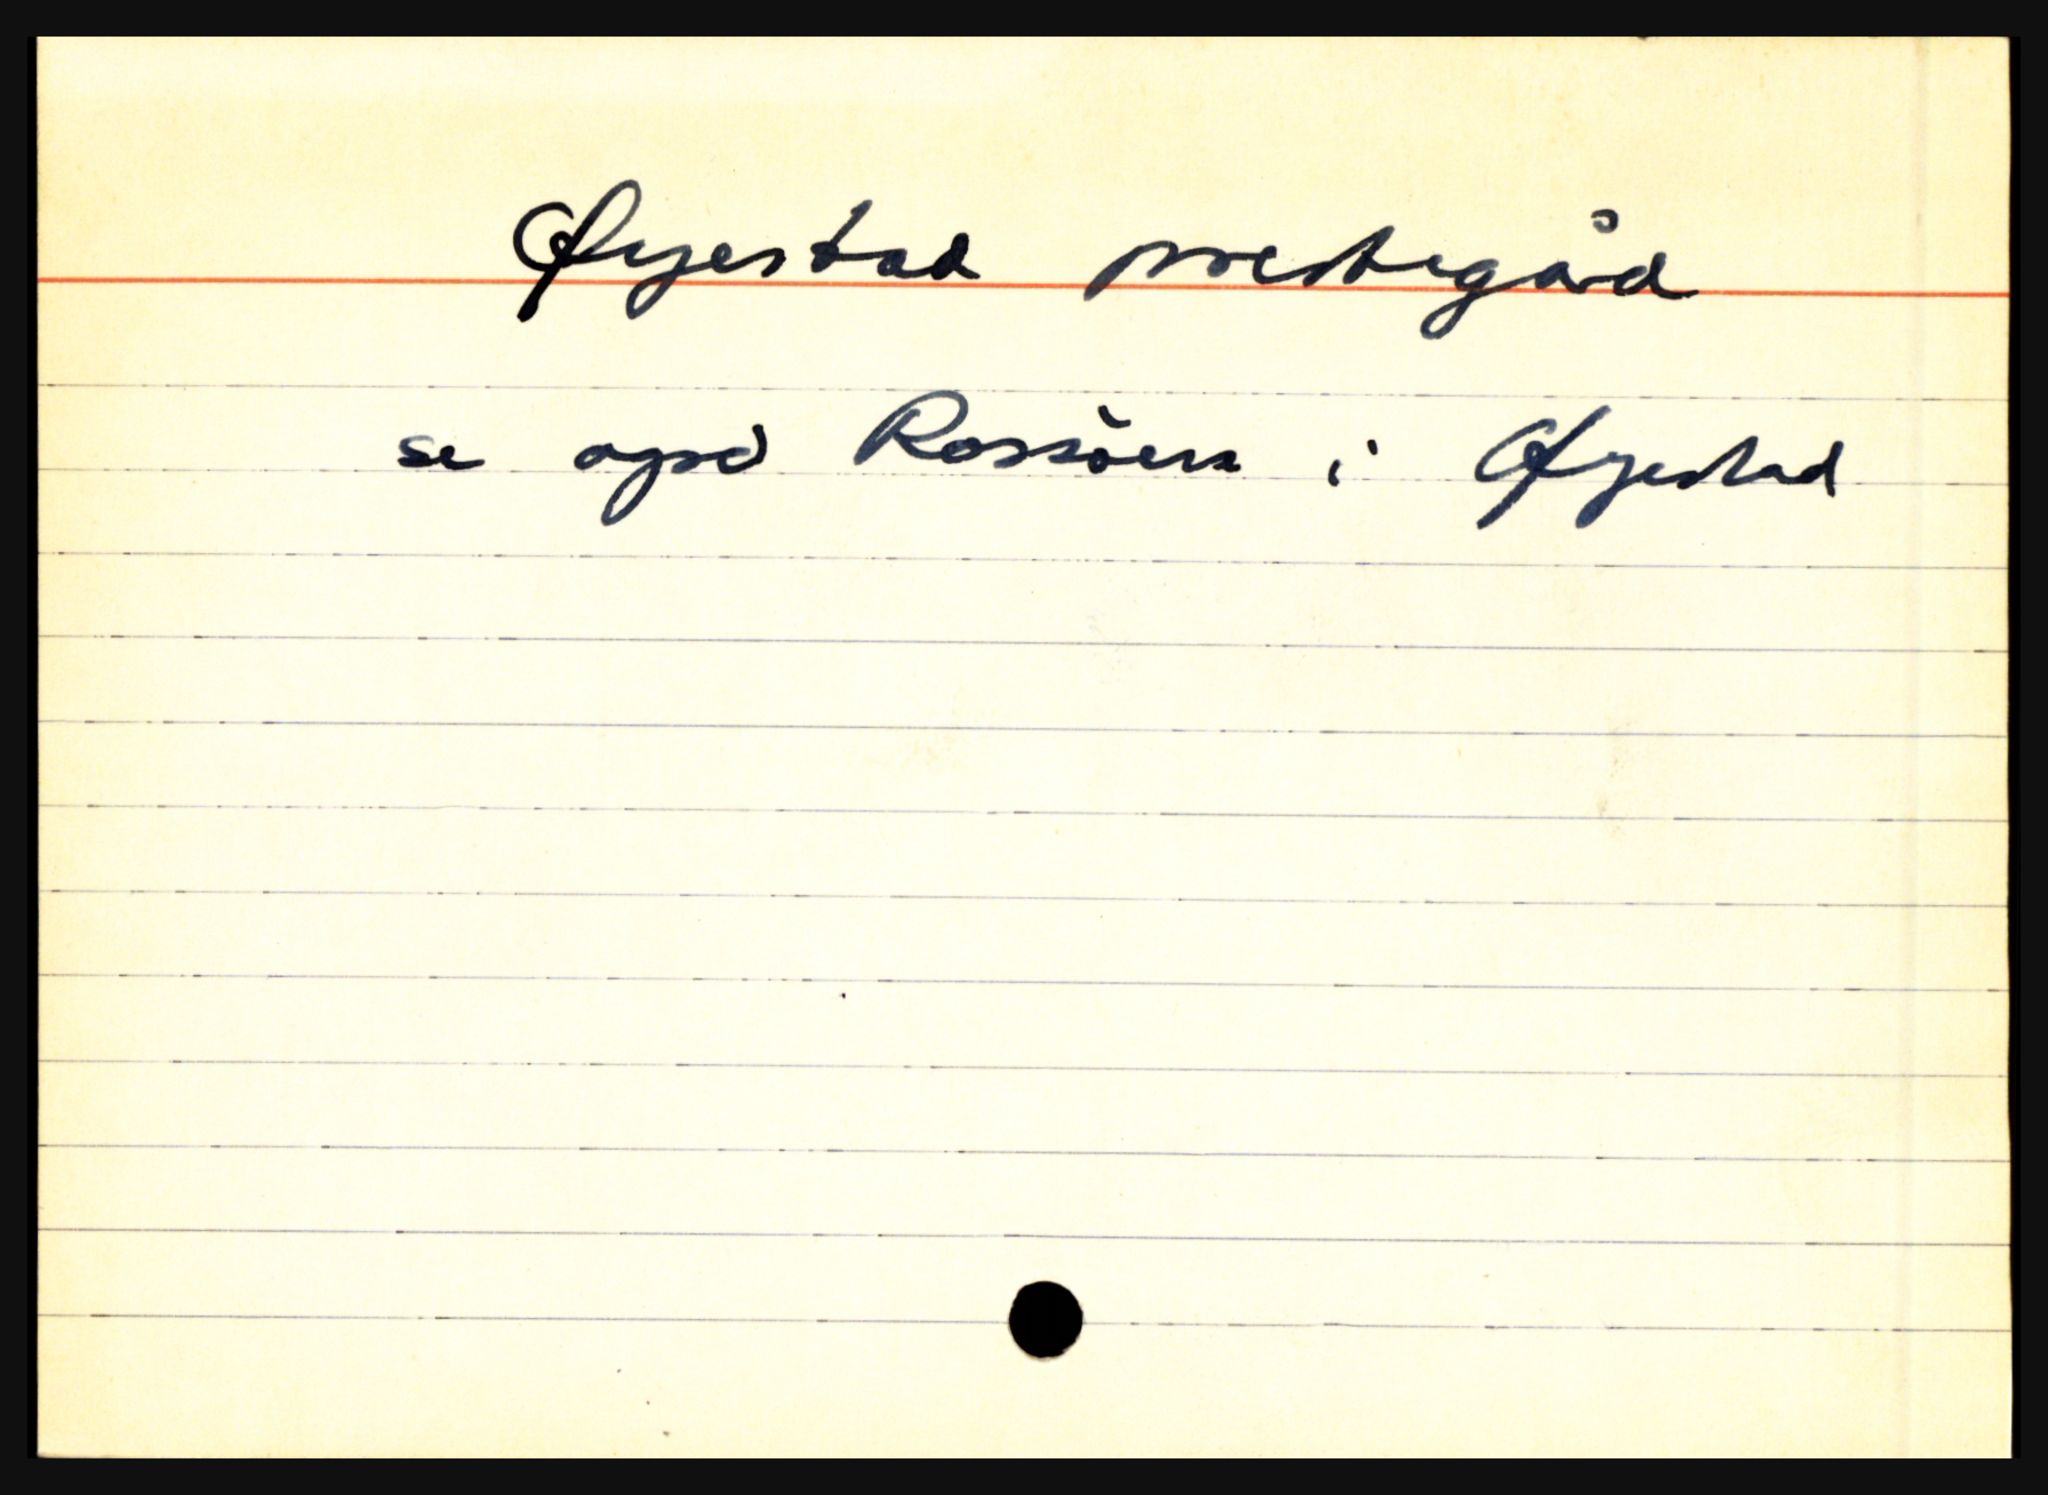 Øyestad prestegård
se også Rossøen i Øyestad